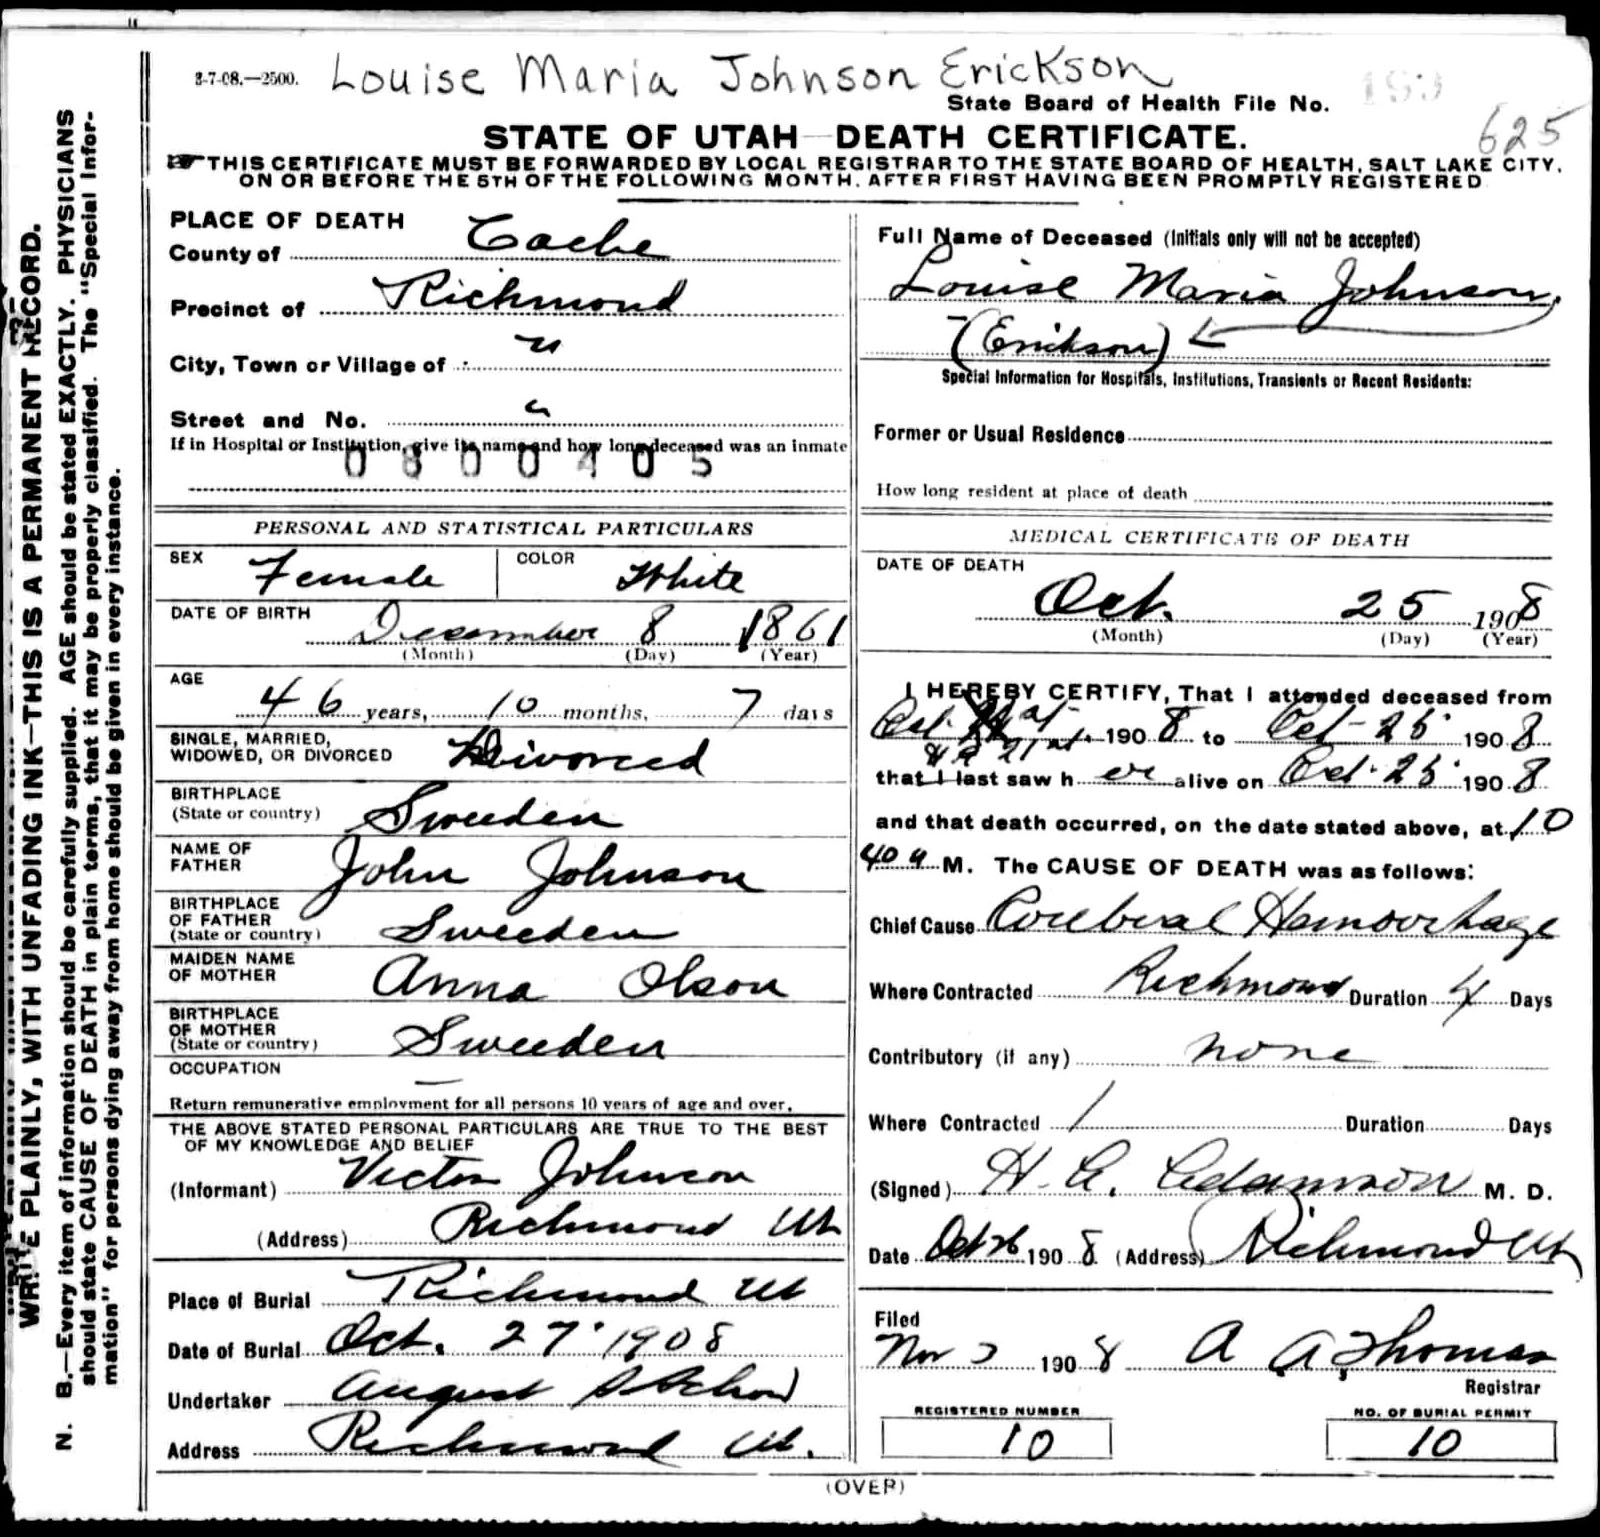 3-7-08.—2500. Louise Maria Johnson Erickson
State Board of Health File No.
625
STATE OF UTAH—DEATH CERTIFICATE.
THIS CERTIFICATE MUST BE FORWARDED BY LOCAL REGISTRAR TO THE STATE BOARD OF HEALTH, SALT LAKE CITY,
ON OR BEFORE THE 5TH OF THE FOLLOWING MONTH, AFTER FIRST HAVING BEEN PROMPTLY REGISTERED
WRITE PLAINLY, WITH UNFADING INK—THIS IS A PERMANENT RECORD.
N. B.—Every item of information should be carefully supplied. AGE should be stated EXACTLY. PHYSICIANS
should state CAUSE OF DEATH in plain terms, that it may be properly classified. The "Special Infor-
mation" for persons dying away from home should be given in every instance.
PLACE OF DEATH
County of Cache
Precinct of Richmond
City, Town or Village of "
Street and No. "
If in Hospital or Institution, give its name and how long deceased was an inmate
0800405
PERSONAL AND STATISTICAL PARTICULARS
SEX Female COLOR White
DATE OF BIRTH
December 8 1861
(Month) (Day) (Year)
AGE
46 years, 10 months, 7 days
SINGLE, MARRIED,
WIDOWED, OR DIVORCED Divorced
BIRTHPLACE
(State or country) Sweeden
NAME OF
FATHER John Johnson
BIRTHPLACE
OF FATHER
(State or country) Sweeden
MAIDEN NAME
OF MOTHER Anna Olson
BIRTHPLACE
OF MOTHER
(State or country) Sweeden
OCCUPATION —
Return remunerative employment for all persons 10 years of age and over.
THE ABOVE STATED PERSONAL PARTICULARS ARE TRUE TO THE BEST
OF MY KNOWLEDGE AND BELIEF
(Informant) Victor Johnson
(Address) Richmond Ut
Place of Burial Richmond Ut
Date of Burial Oct. 27 1908
Undertaker August
Address Richmond Ut.
Full Name of Deceased (Initials only will not be accepted)
Louise Maria Johnson,
(Erickson)
Special Information for Hospitals, Institutions, Transients or Recent Residents:
Former or Usual Residence
How long resident at place of death
MEDICAL CERTIFICATE OF DEATH
DATE OF DEATH
Oct. 25 1908
(Month) (Day) (Year)
I HEREBY CERTIFY, That I attended deceased from
Oct 21st 1908 to Oct-25 1908
that I last saw her alive on Oct-25 1908
and that death occurred, on the date stated above, at 10
40 a M. The CAUSE OF DEATH was as follows:
Chief Cause Cerebral Hemorrhage
Where Contracted Richmond Duration 4 Days
Contributory (if any) none
Where Contracted Duration Days
(Signed) H. A. Adamson M. D.
Date Oct 26 1908 (Address) Richmond Ut
Filed
Nov 1908 A A Thomas
Registrar
REGISTERED NUMBER
10
NO. OF BURIAL PERMIT
10
(OVER)